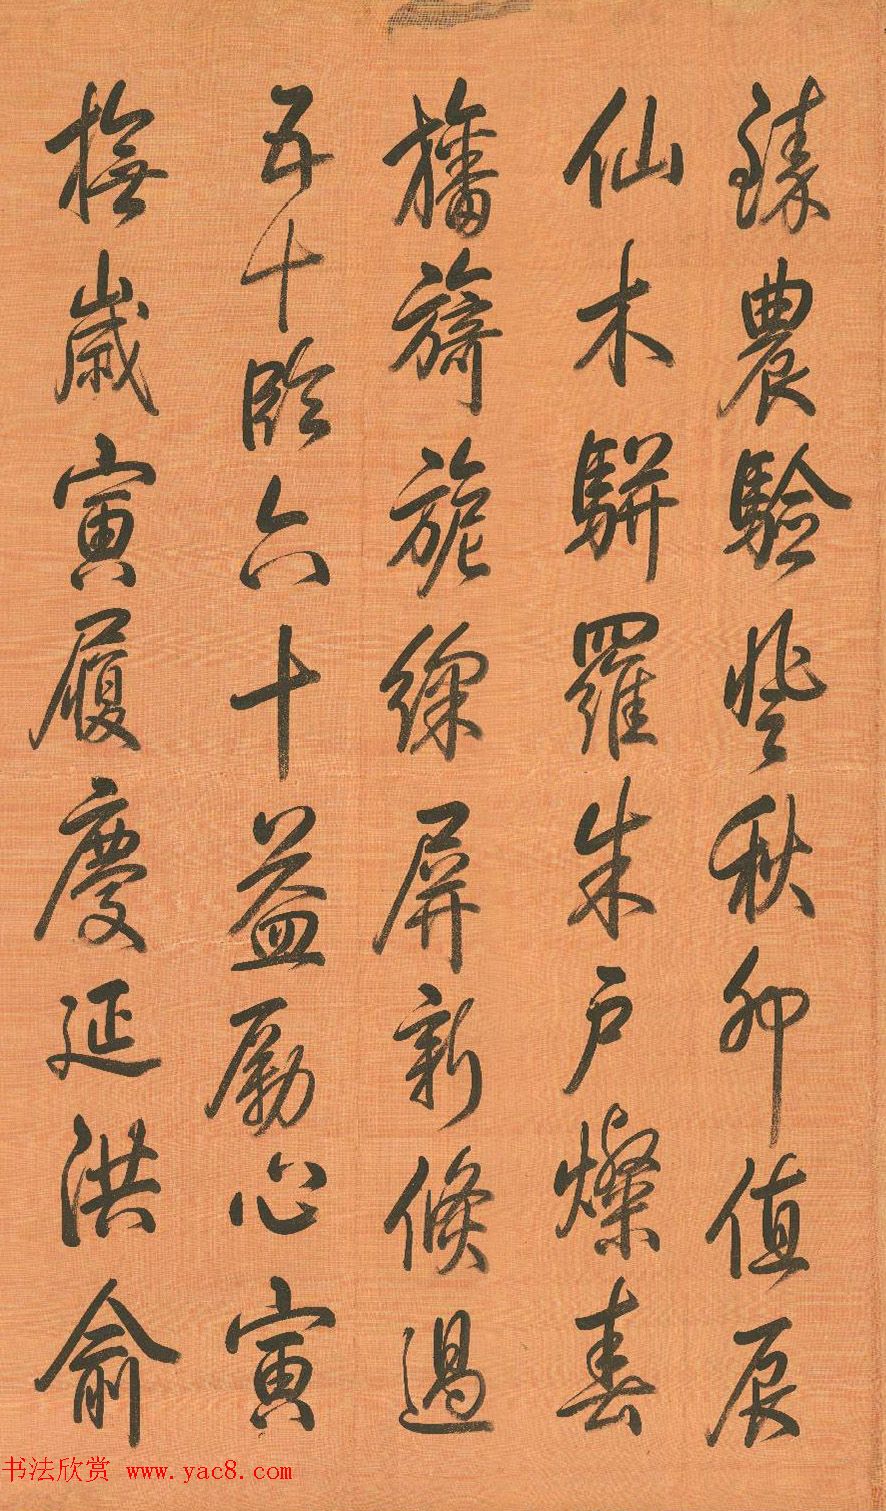 臻農驗登秋卯值辰
仙木駢羅朱户燦春
旛旖旎綵屏新倏過
五十臨六十益勵心寅
撫歲寅履慶延洪俞
书法欣赏 www.yac8.com